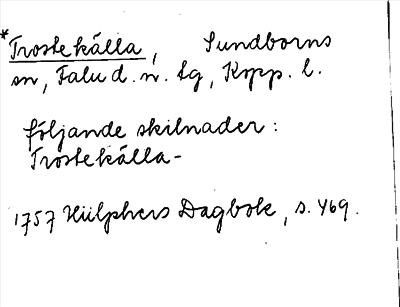 *Trostekälla, Sundborns
sn, Falu d. n. tg, Kopp. l.
följande skilnader:
Trostekälla-
1757 Hülphers Dagbok, s. 469.